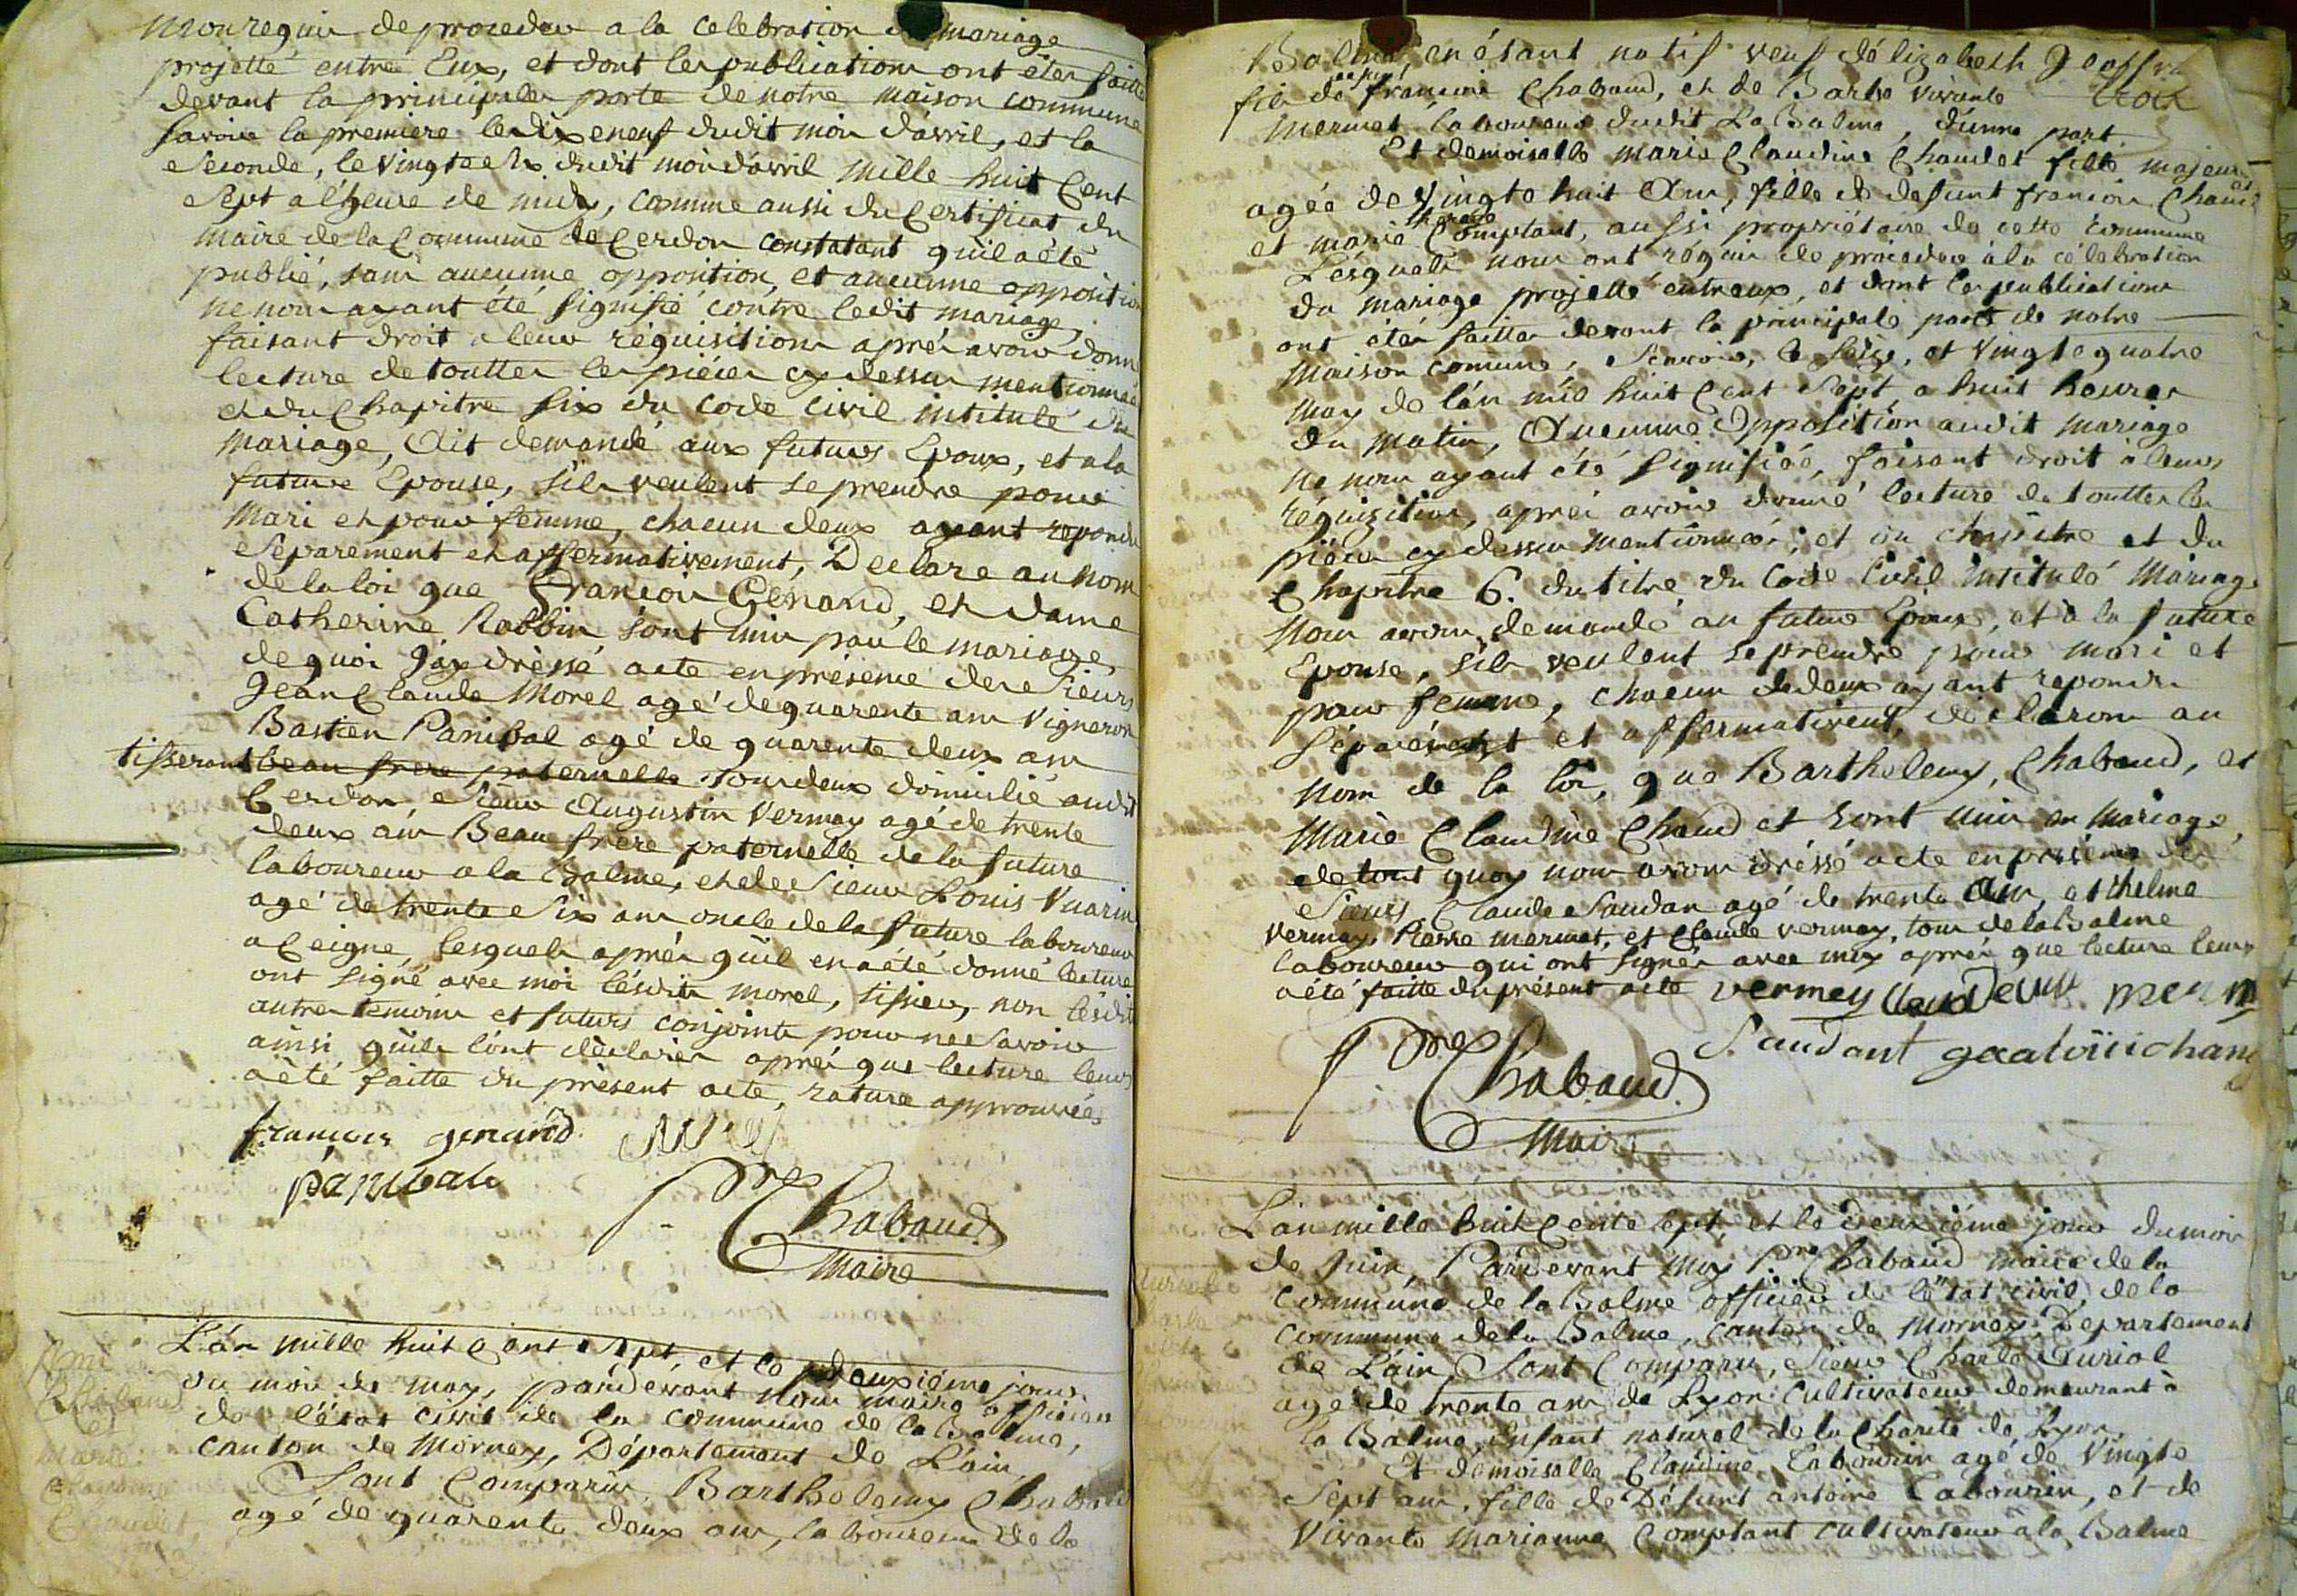 mon requis de proceder a la celebration du mariage
projetté entre Eux, et dont les publications ont étés faitte
devant la principalle porte de notre maison commune
savoir la premiere le dix eneuf dudit mois d'avril, et la
seconde, le vingte six dudit mois d'avril mille huit Cent
sept a l'heure de midy, comme aussi du Certificat du
maire de la Commune de Cerdon constatant qu'il a été
publié, sans aucunne opposition, et aucunne opposition
ne nous ayant été signifié contre ledit mariage,
faisant droit a leur réquisitions aprés avoir donné
lecture de touttes les piéces cy dessus mentionnée
et du Chapitre six du Code civil intitulé du
Mariage, Ait demandé aux futurs Epoux, et a la
future Epouse, s'ils veulent se prendre pour
Mari et pour femme, chacun deux ayant repondu
Séparement et affermativement, Declare au nom
de la loi que françois Génand, et dame
Catherine Robbin sont unis par le mariage,
de quoi j'ay dréssé acte en présence des Sieurs
Jean Claude Morel agé de quarente ans Vigneron
Bastien Panibal agé de quarente deux ans
tisserant beau frere paternelle tous deux domicilié audit
Cerdon, Sieur Augustin Vermay agé de trente
deux ans Beau frère paternelle de la future
laboureur a la Balme, et de Sieur Louis Vuarin
agé de trente Six ans oncle de la future laboureur
a Ceigne, lesquels aprés qu'il en a été donné lecture
ont signé avec moi lésdits morel, tissieur, non lésdits
autres temoins et futurs conjoints pour ne Savoir
ainsi qu'ils l'ont déclarer aprés que lecture leurs
a été faitte du présent acte, rature approuvées
françois genand
panibale
Pre Chabaud
Maire
Chabaud
et
marie
Claudine
Chaudet
L'an mille huit Cent Sept, et le deuxième jour
du mois de may, pardevant Nous maire officier
de l'état civil de la commune de la Balme,
Canton de Mornay, Département de L'ain,
Sont Comparus, Barthelemy Chabaud
agé de quarente deux ans, laboureur de la
Balme, en étant natif veuf d'élizabeth Jeoffray
fils de défunt françois Chabaud, et de Barbe vivante
Mermet, laboureur dudit La Balme, d'unne part.
Et demoiselle marie Claudine Chaudet fille majeure
agée de Vingte huit Ans, fille de defunt françois Chaudet
et marie Comptant, aussi propriétaire de cette Commune
Lésquels nous ont réquis de procéder à la célébration
du mariage projetté entreux, et dont les publications
ont étés faittes devant la principale porte de notre
Maison comune, Scavoir, le Seize, et Vingte quatre
May de l'an mil huit Cent Sept, a huit heures
du matin, Aucunne Opposition audit mariage
ne nous ayant été signifiée, faisant droit à leurs
réquizition, aprés avoir donné lecture de touttes les
piéces cy dessus mentionnées, et du chapitre et du
Chapitre 6. du titre du Code Civil Intitulé Mariage
Nous avons demandé au futur Epoux, et à la future
Epouse, s'ils veulent se prendre pour mari et
pour femme, chacun de deux ayant repondu
Séparément et affermativent, déclarons au
Nom de la loi, que Barthelemy, Chabaud, et
Marie Claudine Chaudet sont unis en mariage,
de tout quoy nous avons dréssé acte en présence des
Sieurs Claude Saudan agé de trente ans, Anthelme
Vermay, Pierre mermet, et Claude vermay, tous de la Balme
laboureurs qui ont signés avec moy aprés que lecture leurs
a été faitte du présent acte vermey
Saudant
Pre Chabaud
Maire
L'an mille huit Cente sept, et le deuxiéme jour du mois
de Juin, Pardevant Moy Pre Chabaud maire de la
Commune de la Balme officier de l'état civil de la
Commune de la Balme, Canton de Mornay, Departement
de L'ain, Sont Comparu, Sieur Charle Auriol
agé de trente ans de Lyon Cultivateur demeurant à
la Balme, Enfant naturel de la Charité de Lyon,
Et demoiselle Claudine Cabourin agé de Vingte
Sept ans, fille de Défunt antoine Cabourin, et de
Vivante Marianne Comptant cultivateur à la Balme